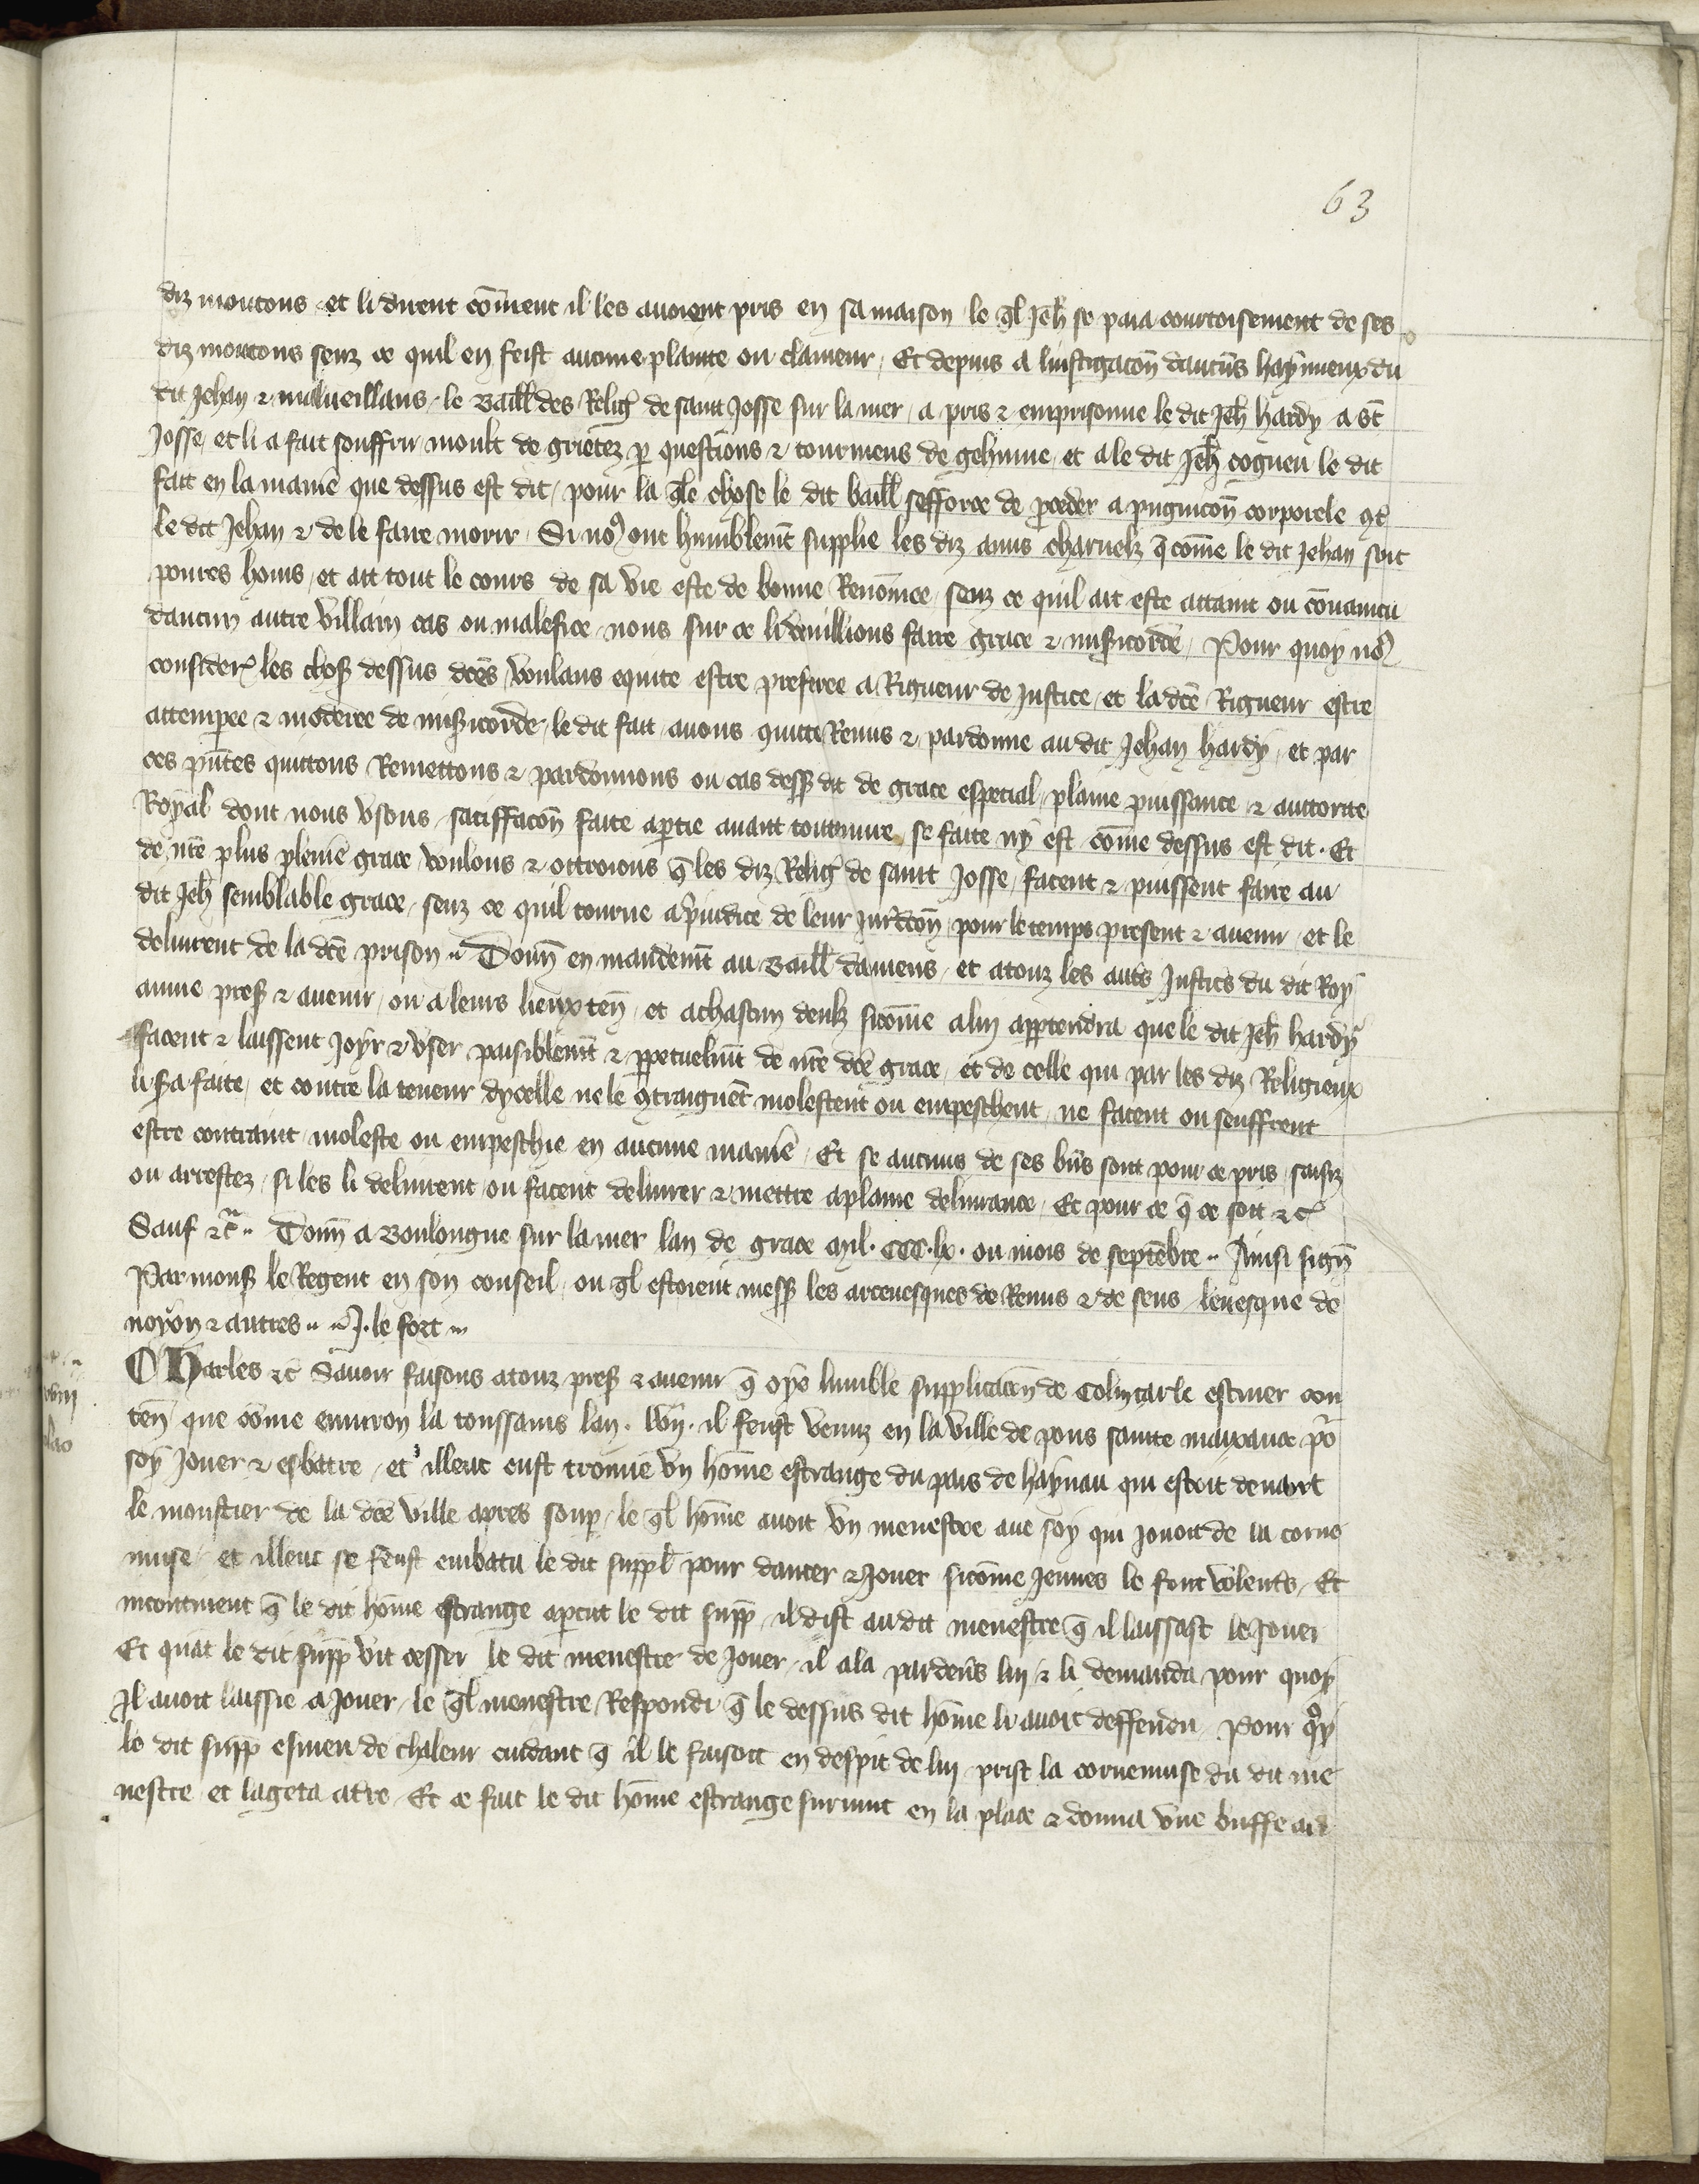 63
diz moutons et li dirent cōment il les auoient pris en sa maison le q̄l Jeh̄ se paia courtoisement de ses
diz moutons senz ce quil en feist aucune plainte ou clameur, Et depuis a linstigacōn daucūs hayneux du
dit Jehan & malueillans, le Baill̄ des Reliḡ de saint Josse sur la mer, a pris & emprisonne le dit Jeh̄ hardy a st̄
Josse, et li a fait souffrir moult de grietez p questions & tourmens de gehinne, et a le dit Jeh̄ cogneu le dit
fait en la manie᷑ que dessus est dit, pour la q̄le chose le dit baill̄ sefforce de pceder a pugnicōn corporele 9t᷑
le dit Jehan & de le faire morir, Si no9 ont humblemt̄ supplie les diz amis charnelz q̄ cōme le dit Jehan soit
poures homs, et ait tout le cours de sa vie este de bonne Renōmee, senz ce quil ait este attaint ou cōuaincu
daucun autre villain cas ou malefice, nous sur ce li vuillions faire grace & mis̄icorde, Pour quoy no9
consider̄ les chos̄ dessus dc̄es, voulans equite estre preferee a Rigueur de Justice, et la dc̄e Rigueur estre
attempee & moderee de mis̄icorde, le dit fait auons quitte Remis & pardonne au dit Jehan hardy, et par
ces p̄ntes quittons Remettons & pardonnons ou cas dess̄ dit de grace especial, plaine puissance & auctorite
Royal dont nous vsons, satiffacōn faite a ptie auant toute euure, se faite ny est cōme dessus est dit. Et
de nr̄e plus pleniē grace voulons & ottroions q̄ les diz Reliḡ de saint Josse, facent & puissent faire au
dit Jeh̄ semblable grace, senz ce quil tourne a p̄iudice de leur Juridc̄on, pour le temps present & auenir, et le
deliurent de la dc̄e prison .. Donn̄ en mandemt̄ au Baill̄ damiens, et a touz les aut᷑s Justics du dit Roy
aume pres̄ & auenir, ou a leurs lieux ten̄, et a chascun deulz sicōme a lui apptendra que le dit Jeh̄ hardy
facent & laissent Joyr & vser paisiblemt̄ & ppetuelmt̄ de nr̄e dc̄e grace, et de celle qui par les diz Religieux
li s̄a faite, et contre la teneur dycelle ne le 9traignēt molestent ou empeschent, ne facent ou seuffrent
estre contraint, moleste ou empeschie en aucune manie᷑, Et se aucuns de ses bn̄s sont pour ce pris, saisiz
ou arrestez, si les li deliurent, ou facent deliurer & mettre a plaine deliurance, Et pour ce q̄ ce soit &c̄
Sauf &c̄ .. Donn̄ a Boulongne sur la mer lan de grace Mil. CCC. lx. ou mois de septēbre .. Ainsi sign̄
Par mons̄ le Regent en son conseil, ou q̄l estoient mess̄ les arceuesques de Reims & de sens, leuesque de
noyon & autres .. .. J. le fort ...
CHarles &c̄ Sauoir faisons a touz pres̄ & auenir q̄ oye lumble supplicacōn de Colin carle escuier con
ten̄ que cōme enuiron la toussains lan. lvij. il feust venuz en la ville de pons sainte maxance po᷑
soy Jouer & esbatre, et illeuc eust trouue vn hōme estrange du pais de haynau qui estoit deuant
le moustier de la dc̄e ville apres soup, le q̄l hōme auoit vn menestre auec soy qui Jouoit de la corne
muse, et illeuc se feust embatu le dit suppl̄ pour dancer & Jouer sicōme Jeunes le font volent᷑s, Et
incontinent q̄ le dit hōme estrange apcut le dit supp̄, il dist au dit menestre q̄ il laissast le Jouer
Et quāt le dit supp̄ vit cesser le dit menestre de Jouer, il ala par deūs lui & li demanda pour quoy
Il auoit laissie a Jouer, le q̄l menestre Respondi q̄ le dessus dit hōme li auoit deffendu, Pour qoy
le dit supp̄ esmeu de chaleur cuidant q̄ il le faisoit en despit de lui prist la cornemuse du dit me
nestre et la geta a t᷑re, Et ce fait le dit hōme estrange suruint en la place & donna vne buffe au